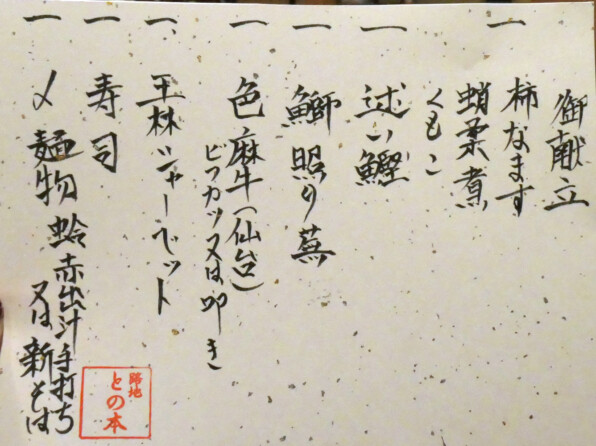 御献立
一 柿なます
蛸柔煮
くもこ
一 迷い鰹
一 鰤照り蕪
一 色麻牛(仙台)
ビフカツ又は叩き
一、王林シャーベット
一 寿司
一 〆麺物 蛤赤出汁手打ち
又は新そば
路地
との本